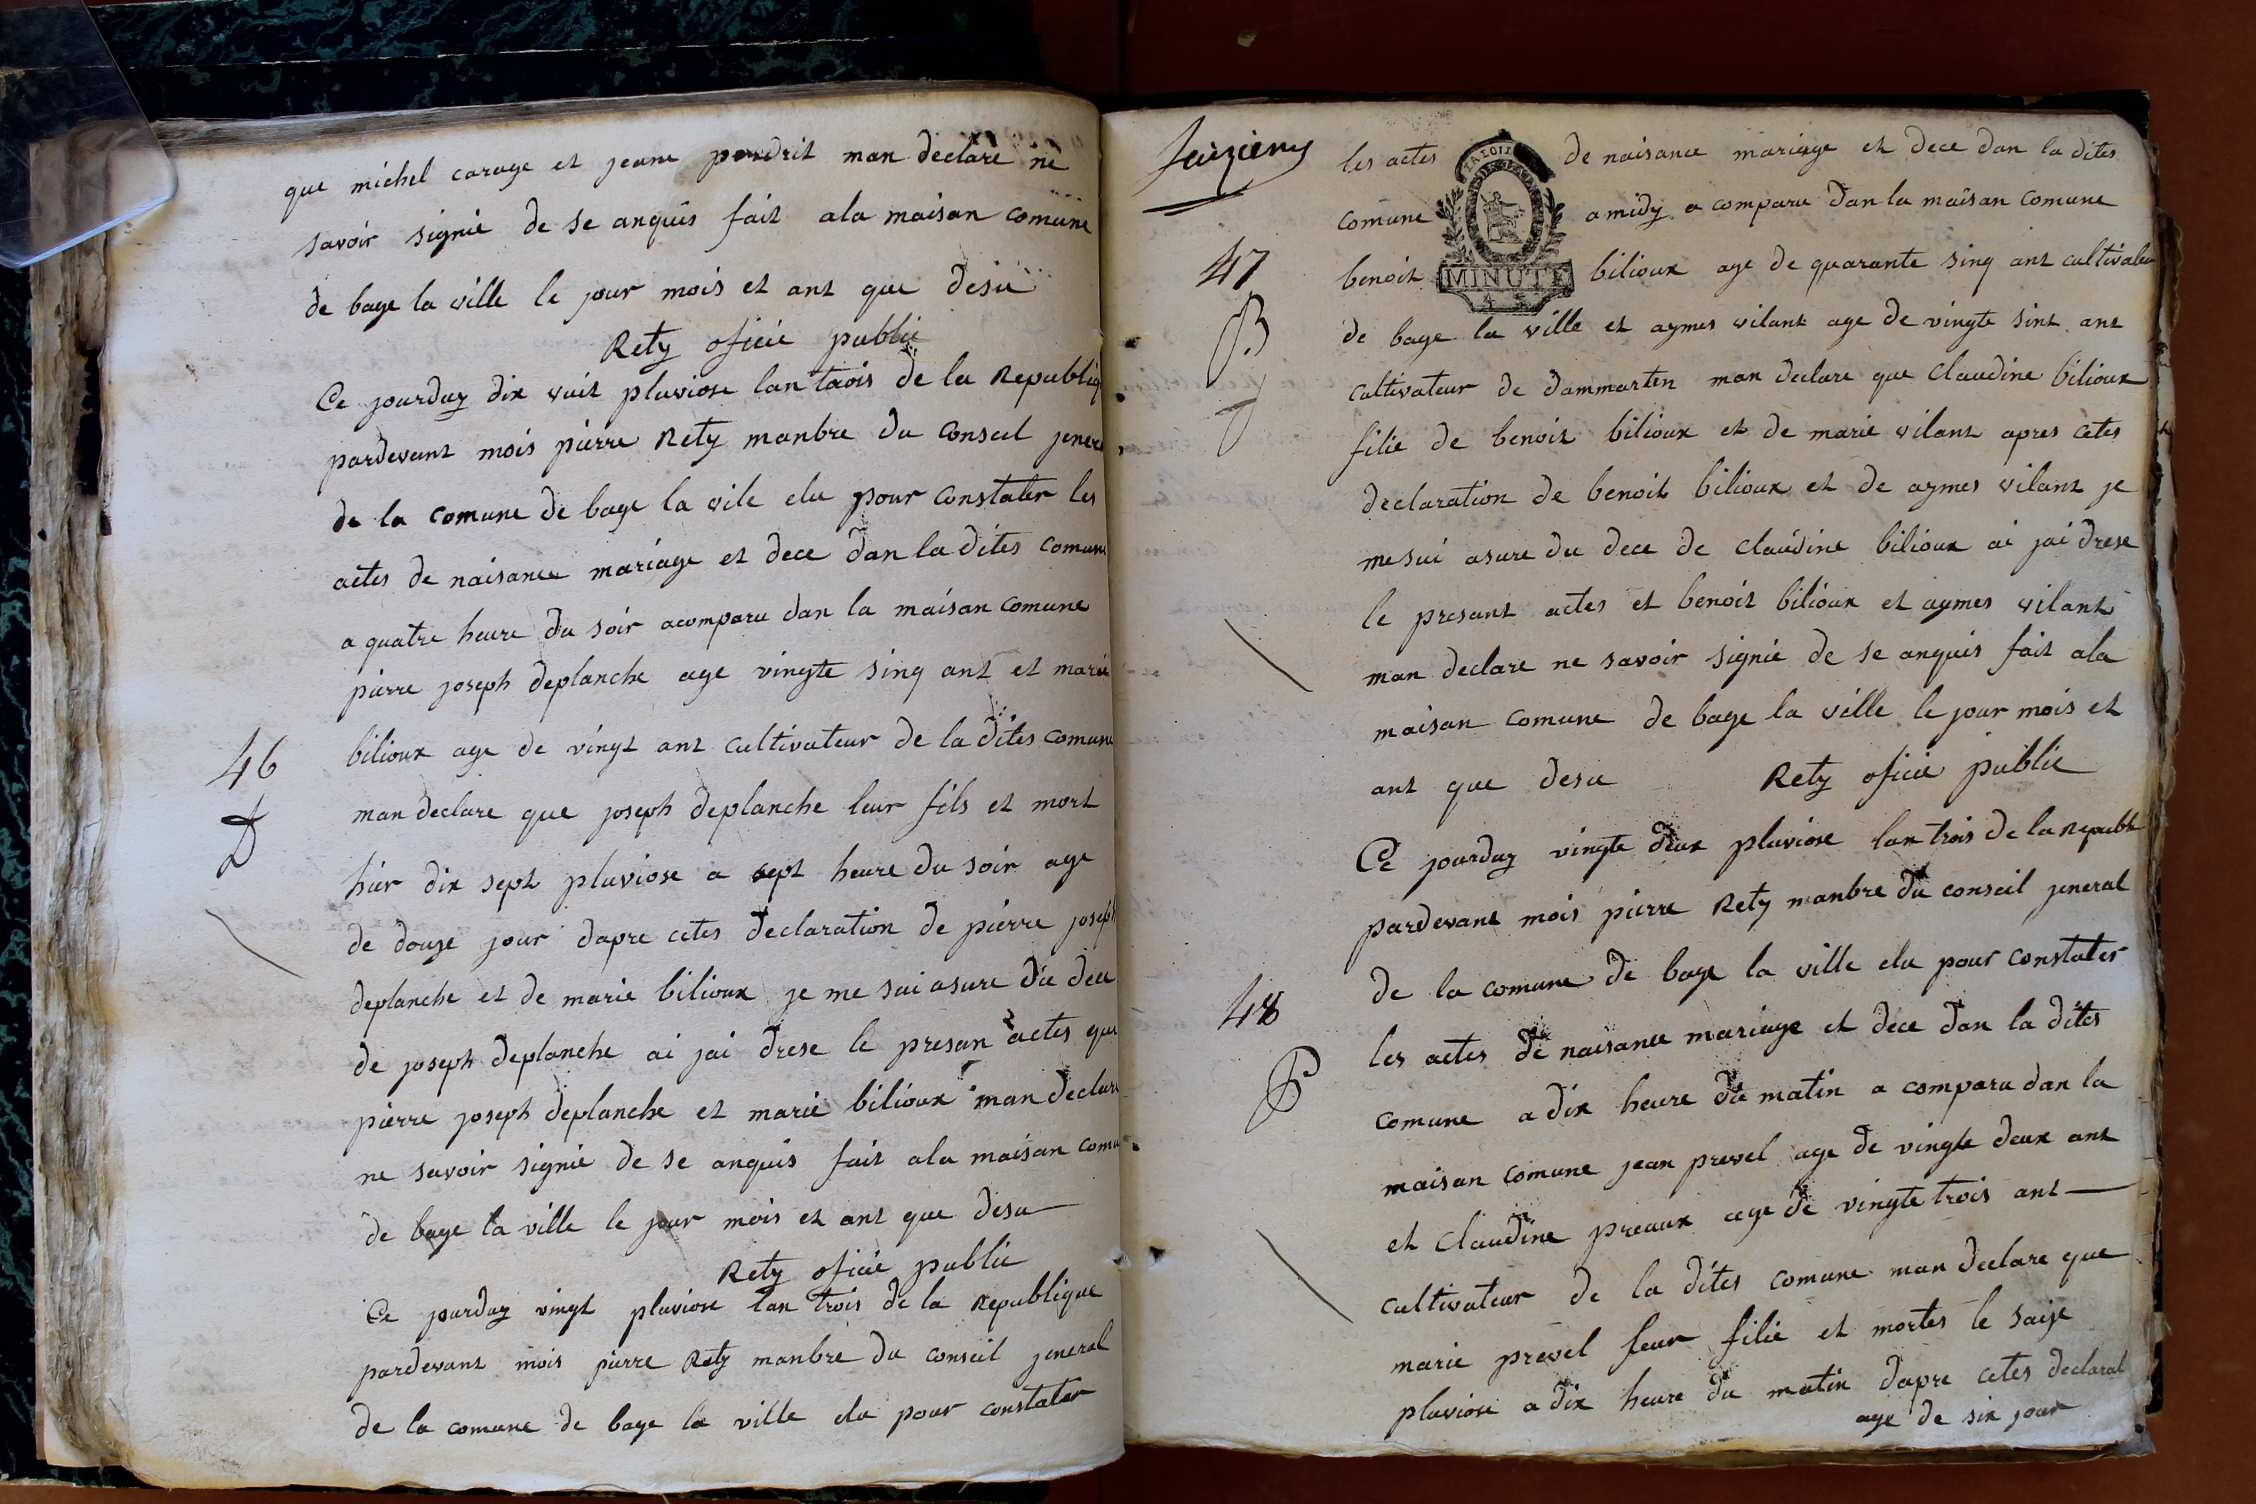 que michel carage et jeanne perdrit man declare ne
savoir signié de se anquis fait ala maison comune
de bage la ville le jour mois et ant que desu
Rety oficié public
Ce jourduy dix vuit pluviose lan trois de la Republiq
pardevant mois pierre Rety manbre du Conseil jenera
de la comune de bage la vile elu pour Constater les
actes de naisance mariage et dece dan la dites comune
a quatre heure du soir acomparu dan la maison comune
pierre joseph deplanche age vingte sinq ant et marie
46
bilioux age de vingt ant cultivateur de la dites comune
D
man declare que joseph deplanche leur fils et mort
hier dix sept pluviose a sept heure du soir age
de douze jour dapre cetes declaration de pierre joseph
deplanche et de marie bilioux je me sui asure du dece
de joseph deplanche ai jai drese le presan actes que
pierre joseph deplanche et marie bilioux man declare
ne savoir signié de se anquis fait ala maison comu
de bage la ville le jour mois et ant que desu
Rety oficié public
Ce jourduy vingt pluviose lan trois de la Republique
pardevant mois pierre Rety manbre du conseil jeneral
de la comune de bage la ville elu pour constater
les actes de naisance mariage et dece dan la dites
comune a midy a comparu dan la maison comune
47
benoit MINUTE bilioux age de quarante sinq ant cultivateur
B
de bage la ville et aymes vilant age de vingte sint ant
cultivateur de dammartin man declare que Claudine bilioux
filie de benoit bilioux et de marie vilant apres cetes
declaration de benoit bilioux et de aymes vilant je
me sui asure du dece de claudine bilioux ai jai drese
le presant actes et benoit bilioux et aymes vilant
man declare ne savoir signié de se anquis fait ala
maison comune de bage la ville le jour mois et
ant que desu Rety oficié public
Ce jourduy vingte deux pluviose lan trois de la Republi
pardevant mois pierre Rety manbre du conseil jeneral
de la comune de bage la ville elu pour constater
48
les actes de naisance mariage et dece dan la dites
P
comune a dix heure du matin a comparu dan la
maison comune jean prevel age de vingte deux ant
et claudine preaux age de vingte trois ant
cultivateur de la dites comune man declare que
marie prevel leur filie et mortes le saize
pluviose a dix heure du matin dapre cetes declarat
age de six jour